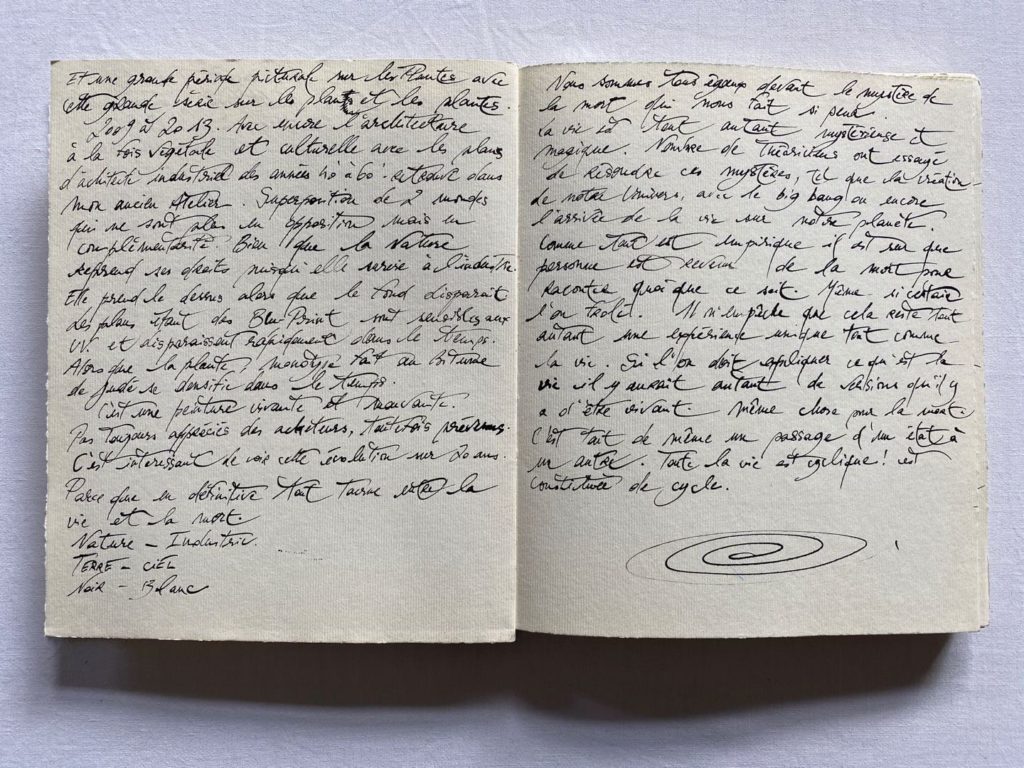 Et une grande période picturale sur les Plantes avec
cette grande série sur les plans et les plantes.
2009 à 2013. Avec encore l'architecture
à la fois végétale et culturelle avec les plans
d'achitecte industriel des années 40 à 60. retrouvé dans
mon ancien Atelier. Superposition de 2 mondes
qui ne sont plus en opposition mais en
complémentarité. Bien que la Nature
reprend ses droits puisqu'elle à l'industrie.
Elle prend le dessus alors que le fond disparait
des plans étant des Blu-Print sont sensibles aux
UV. et disparaissent rapidement dans le temps.
Alors que la plante, monotype fait au Bitume
de judé se densifie dans le temps.
C'est une peinture vivante et mouvante.
Pas toujours appréciés des acheteurs, toutefois prévenus.
C'est interessant de voir cette évolution sur 20 ans.
Parce que en définitive tout tourne entre la
vie et la mort.
Nature – Industrie.
TERRE – CIEL
Noir – Blanc
Nous sommes tous égaux devant le mystère de
la mort qui nous fait si peur.
La vie est tout autant mystérieuse et
magique. Nombre de Théoriciens ont essayé
de résoudre ces mystères, tel que la création
de notre Univers, avec le big bang ou encore
l'arrivée de la vie sur notre planète.
Comme tout est empirique il est sur que
personne est revenu de la mort pour
raconter quoi que ce soit. Même si certains
l'on frolé. Il n'empêche que cela reste tout
autant une expérience unique tout comme
la vie. Si l'on doit expliquer ce qu'est la
vie il y aurait autant de versions qu'il y
a d'être vivant. Même chose pour la mort.
C'est tout de même un passage d'un état à
un autre. Toute la vie est cyclique! est
constituée de cycle.